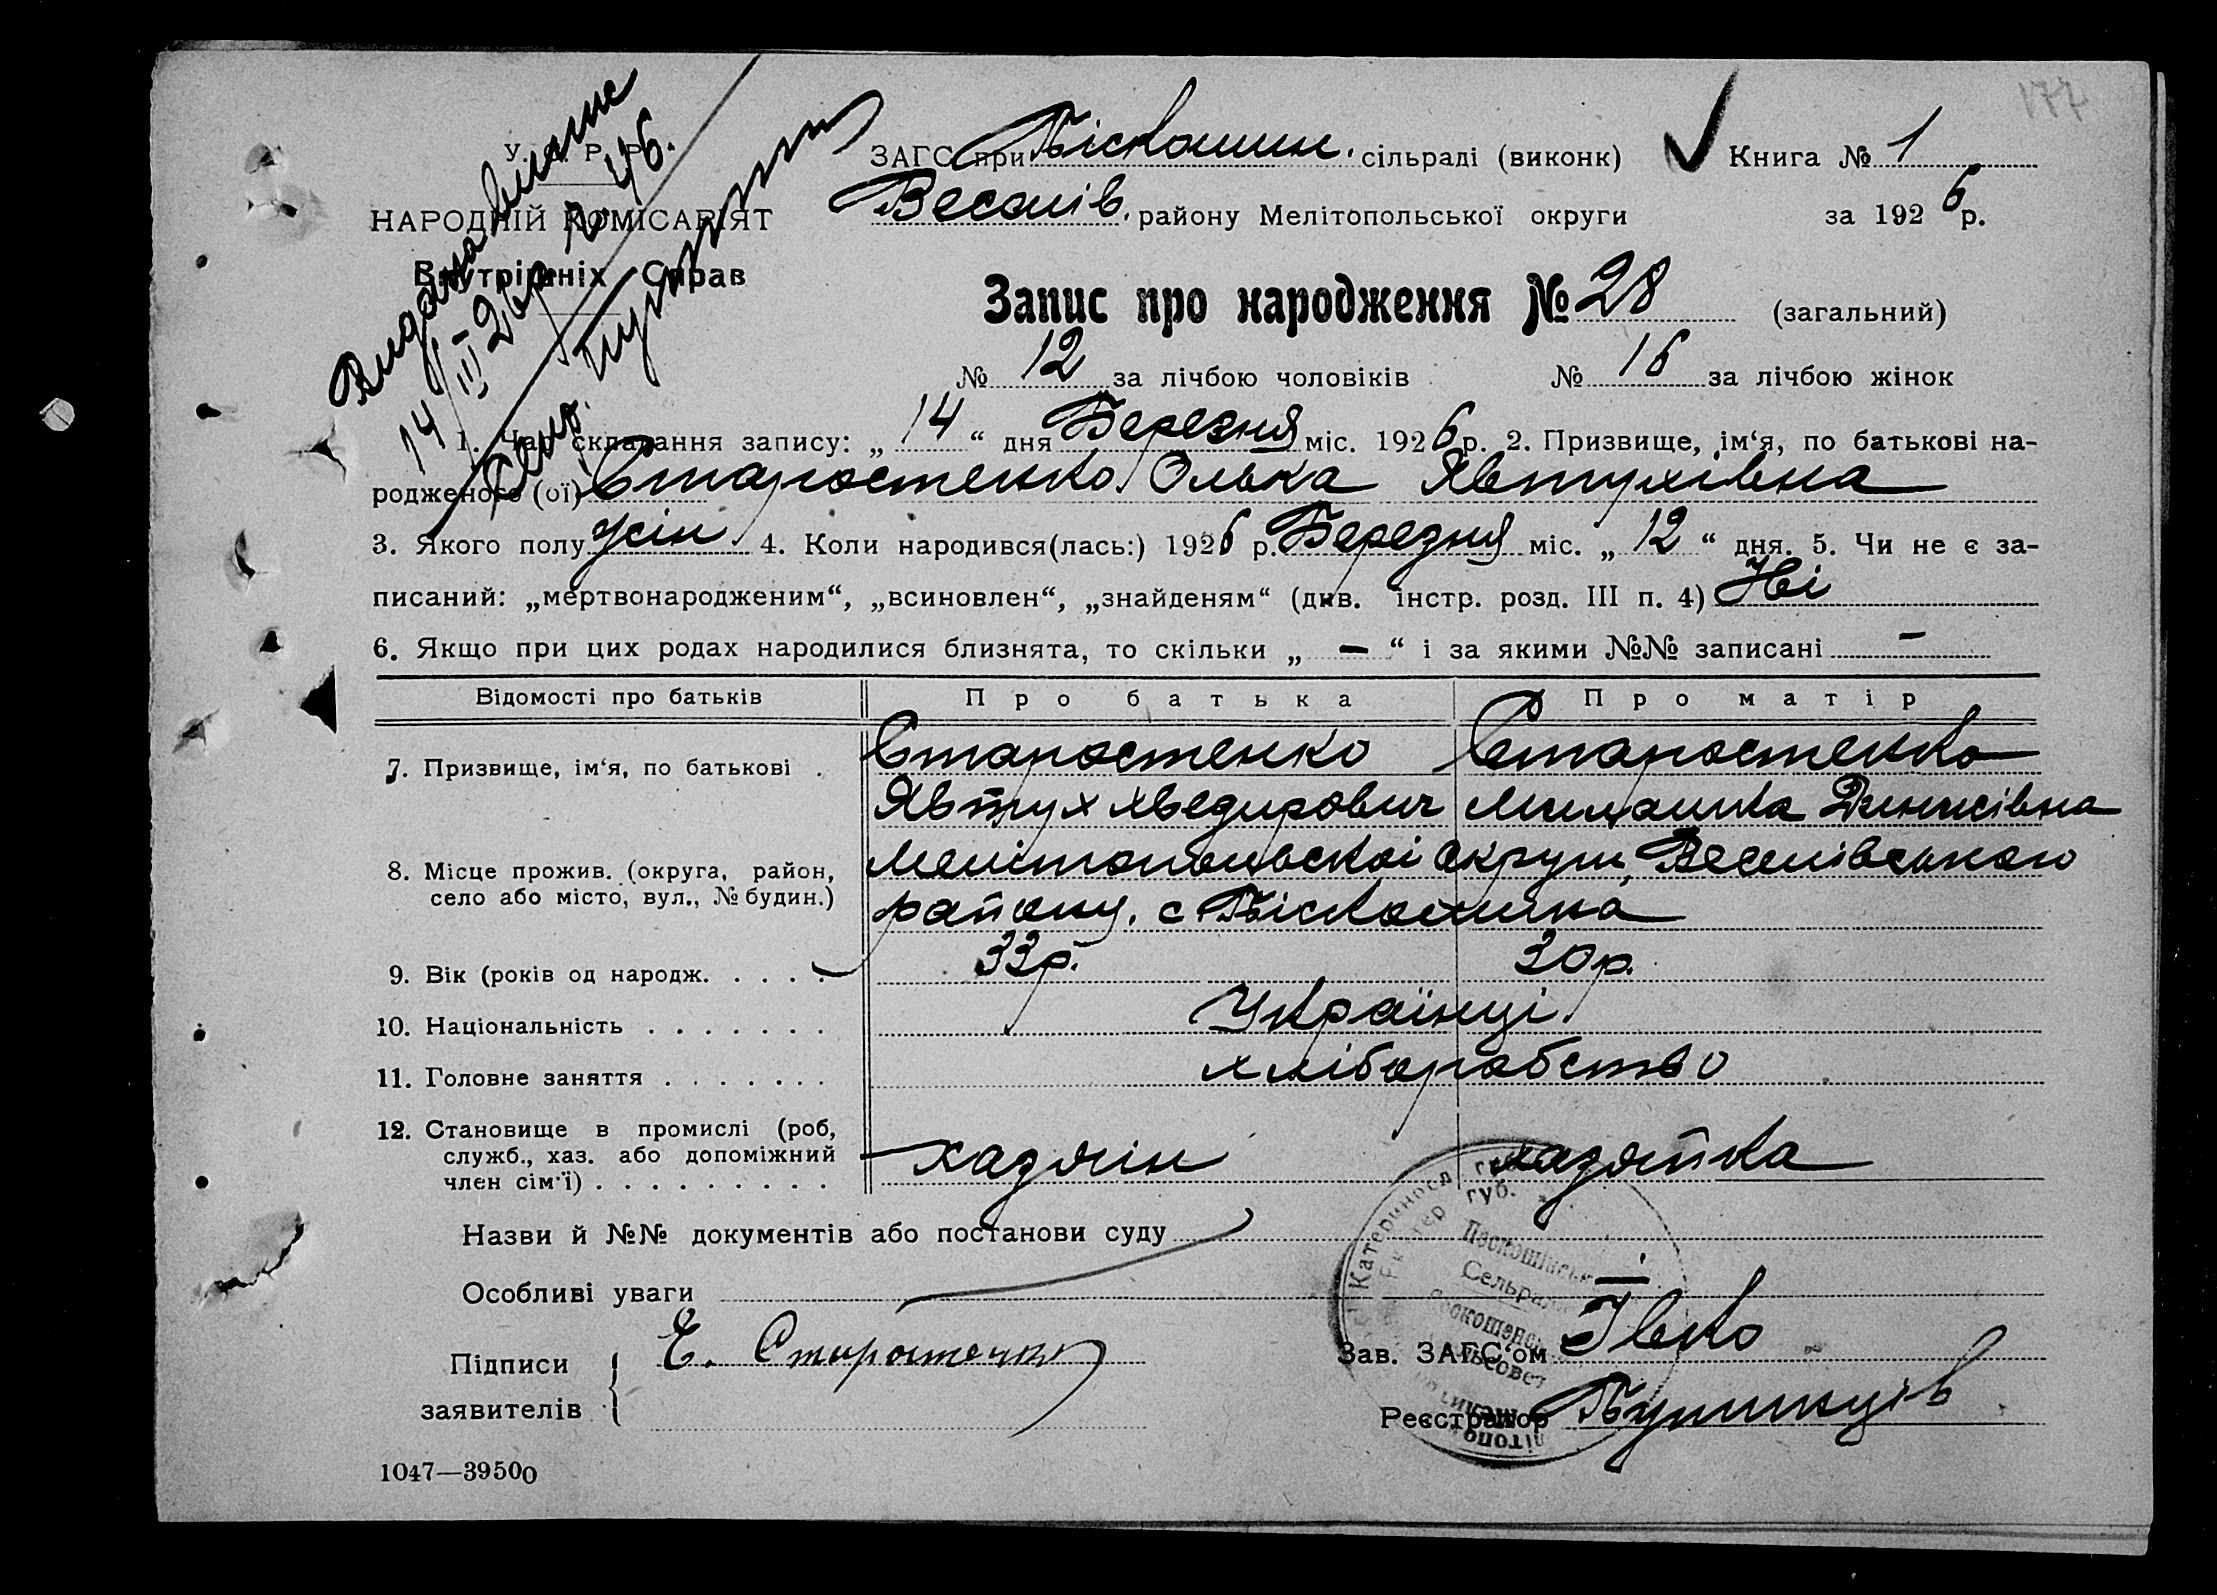 177
У. С. Р. Р.
ЗАГС при Піскошин. сільраді (виконк) Книга № 1
НАРОДНІЙ КОМІСАРІЯТ
Веселів. району Мелітопольської округи за 1926 р.
Внутрішніх Справ
Видана виписк
14/III-26р № 46.
Запис про народження № 28 (загальний)
№ 12 за лічбою чоловіків № 16 за лічбою жінок
1. Час складання запису: „ 14 “ дня Березня міс. 1926 р. 2. Призвище, ім‘я, по батькові на-
родженого (ої) Старостенко Олька Явтухівна
3. Якого полу жін. 4. Коли народився(лась:) 1926 р. Березня міс. „ 12 “ дня. 5. Чи не є за-
писаний: „мертвонародженим“, „всиновлен“, „знайденям“ (див. інстр. розд. III п. 4) Ні
6. Якщо при цих родах народилися близнята, то скільки „ — “ і за якими №№ записані —
Відомості про батьків Про батька Про матір
7. Призвище, ім‘я, по батькові . Старостенко Старостенко
Явтух Хведирович
8. Місце прожив. (округа, район, Мелітопольскоі Округи, Веселівського
село або місто, вул., № будин.) району. с Піскошина
9. Вік (років од народж. . . . . 33р. 30р.
10. Національність . . . . . . . Українці.
11. Головне заняття . . . . . . . хліборобство
12. Становище в промислі (роб,
служб., хаз. або допоміжний хазяін хазяйка
член сім‘ї) . . . . . . . . .
Назви й №№ документів або постанови суду
Особливі уваги
Підписи Е. Старостенко
Зав. ЗАГС‘ом Івко
заявителів
Реєстратор
1047—39500